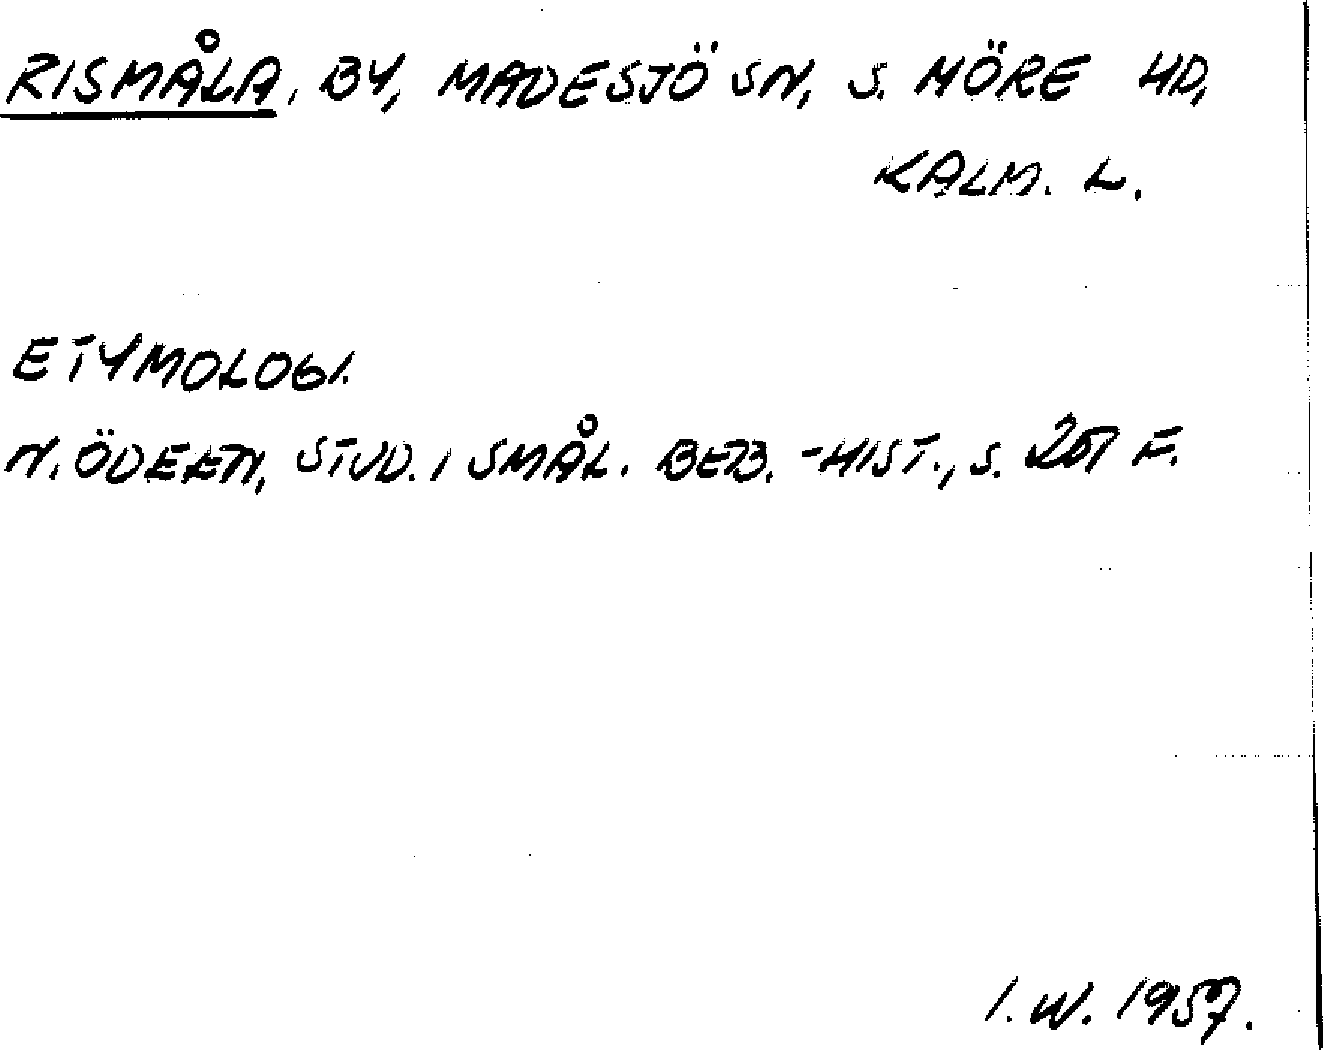 RISMÅLA, BY, MADESJÖ SN, S. MÖRE HD,
KALM. L.
ETYMOLOGI.
N. ÖDEEN, STUD. I SMÅL. BEB. -HIST., S. F.
I. W. 1957.